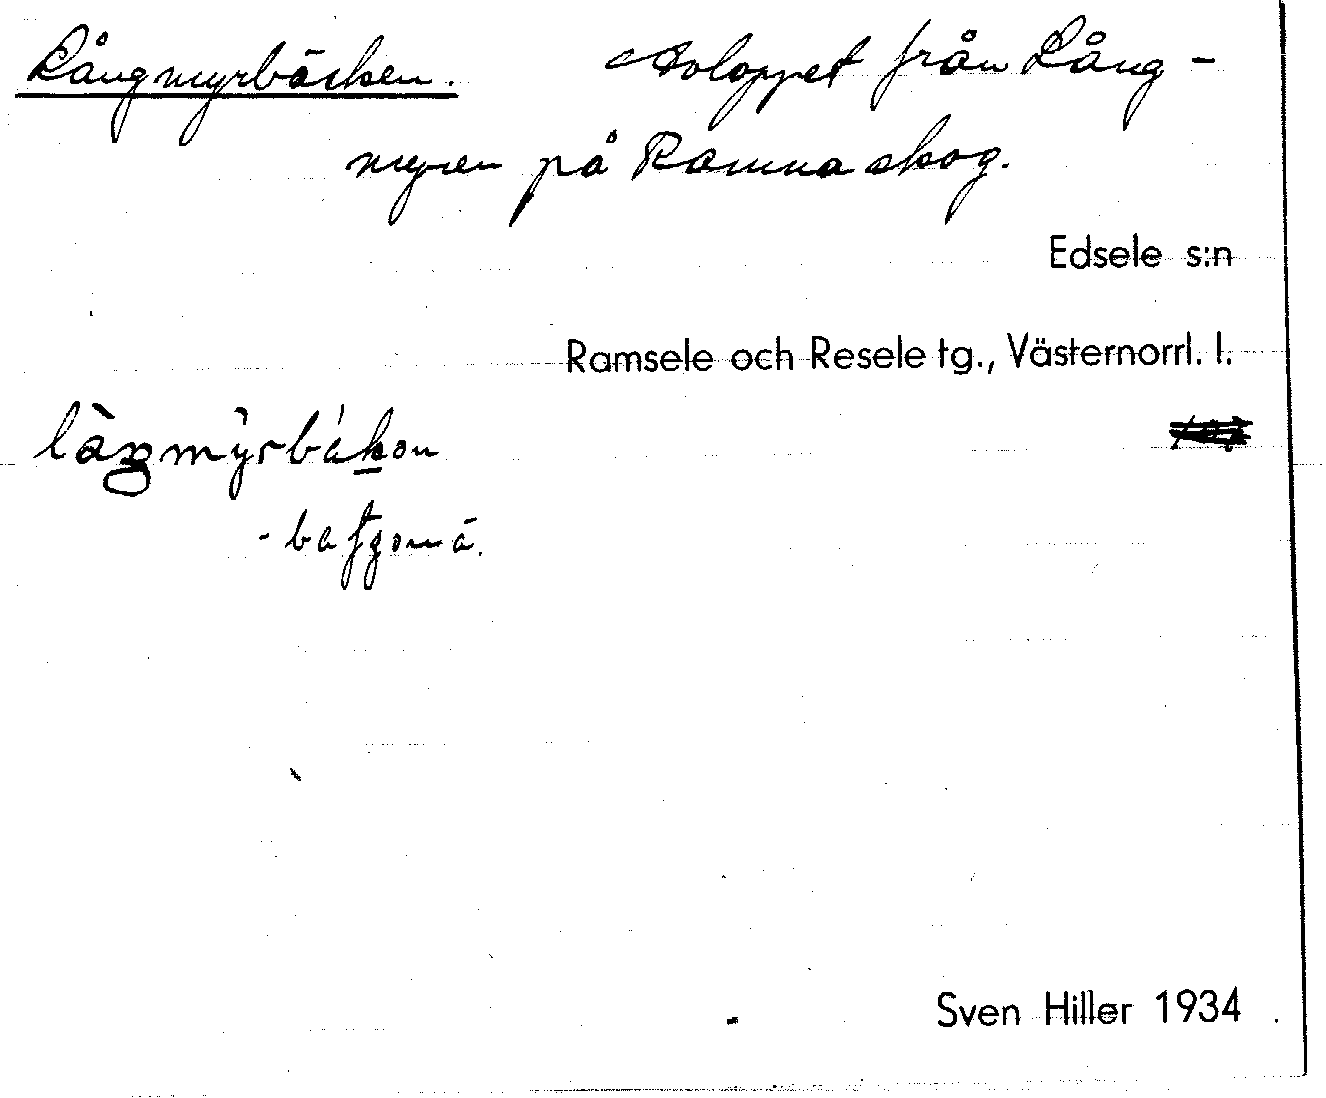 Långmyrbäcken. Avloppet från Lång-
myren på Ramna skog.
Edsele s:n
Ramsele och Resele tg., Västernorrl. l.
Sven Hiller 1934